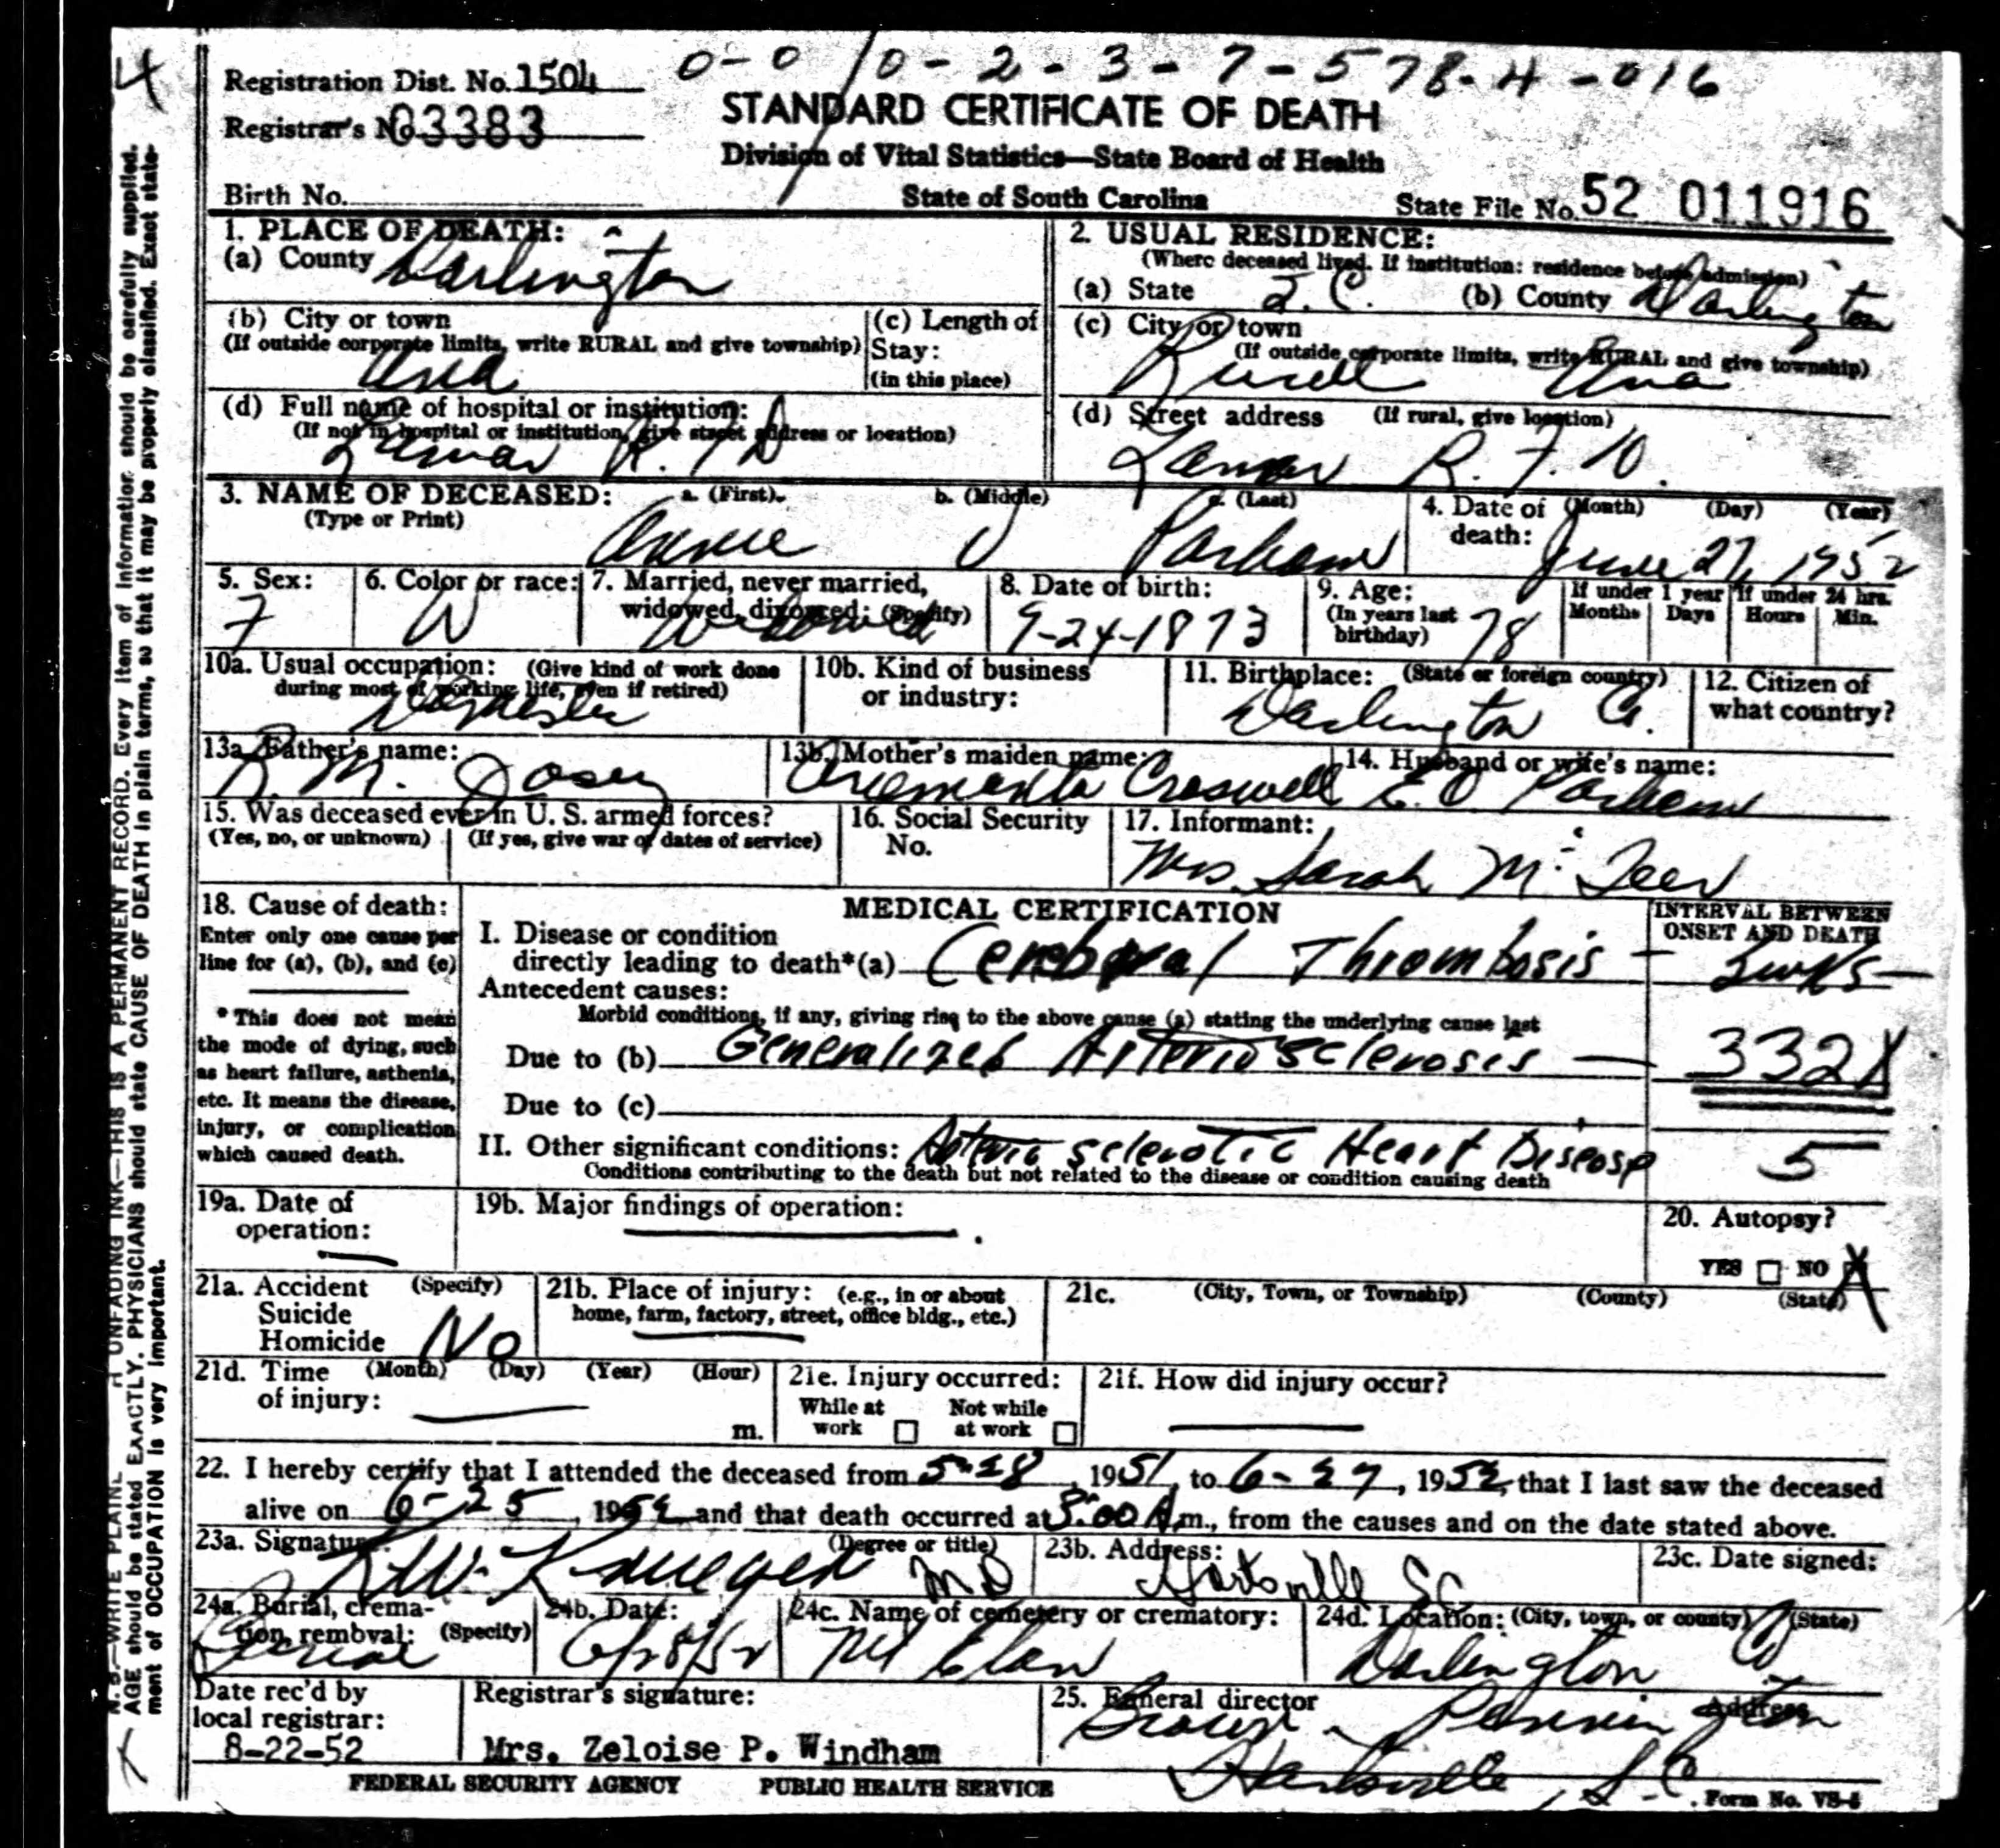 4
0-0 10-2-3-7-578-4-016
Registration Dist. No. 1504
Registrar's No. 03383
STANDARD CERTIFICATE OF DEATH
Division of Vital Statistics—State Board of Health
Birth No.
State of South Carolina
State File No. 52 011916
1. PLACE OF DEATH:
(a) County Darlington
(b) City or town
(If outside corporate limits, write RURAL and give township)
(c) Length of Stay: (in this place)
(d) Full name of hospital or institution:
(If not in hospital or institution, give street address or location)
Lamar R. F. D
2. USUAL RESIDENCE:
(Where deceased lived. If institution: residence before admission)
(a) State S. C. (b) County Darlington
(c) City or town
(If outside corporate limits, write RURAL and give township)
Rural
(d) Street address (If rural, give location)
Lamar R. F. D.
3. NAME OF DECEASED: a. (First) b. (Middle) c. (Last)
(Type or Print) Annie J Parham
4. Date of death: (Month) (Day) (Year)
June 27, 1952
5. Sex: F
6. Color or race: W
7. Married, never married, widowed, divorced: (Specify) Widowed
8. Date of birth: 9-24-1873
9. Age: (In years last birthday) 78
If under 1 year Months Days
If under 24 hrs. Hours Min.
10a. Usual occupation: (Give kind of work done during most of working life, even if retired)
Domestic
10b. Kind of business or industry:
11. Birthplace: (State or foreign country)
Darlington Co.
12. Citizen of what country?
13a. Father's name: R. M. Josey
13b. Mother's maiden name: Croswell
14. Husband or wife's name: E. O Parham
15. Was deceased ever in U. S. armed forces?
(Yes, no, or unknown) (If yes, give war or dates of service)
16. Social Security No.
17. Informant:
Mrs. Sarah Mc Teer
18. Cause of death:
Enter only one cause per line for (a), (b), and (c)
*This does not mean the mode of dying, such as heart failure, asthenia, etc. It means the disease, injury, or complication which caused death.
MEDICAL CERTIFICATION
INTERVAL BETWEEN ONSET AND DEATH
I. Disease or condition directly leading to death*(a) Cerebral Thrombosis - wks -
Antecedent causes:
Morbid conditions, if any, giving rise to the above cause (a) stating the underlying cause last
Due to (b) Generalized Arteriosclerosis — 332X
Due to (c)
II. Other significant conditions: Arteriosclerotic Heart Disease 5
Conditions contributing to the death but not related to the disease or condition causing death
19a. Date of operation: —
19b. Major findings of operation: —
20. Autopsy?
YES NO X
21a. Accident (Specify)
Suicide
Homicide No
21b. Place of injury: (e.g., in or about home, farm, factory, street, office bldg., etc.)
21c. (City, Town, or Township) (County) (State)
21d. Time of injury: (Month) (Day) (Year) (Hour) m.
21e. Injury occurred:
While at work Not while at work
21f. How did injury occur?
22. I hereby certify that I attended the deceased from 5-28, 1951, to 6-27, 1952, that I last saw the deceased
alive on 6-25, 1952 and that death occurred at 3:00 A.m., from the causes and on the date stated above.
23a. Signature: (Degree or title)
R.W. Krueger MD
23b. Address:
Hartsville SC
23c. Date signed:
24a. Burial, cremation, removal: (Specify)
Burial
24b. Date: 6/28/52
24c. Name of cemetery or crematory:
Mt Elon
24d. Location: (City, town, or county) (State)
Darlington Co
Date rec'd by local registrar:
8-22-52
Registrar's signature:
Mrs. Zeloise P. Windham
25. Funeral director Address
Brown - Pennington
Hartsville, S.C.
FEDERAL SECURITY AGENCY PUBLIC HEALTH SERVICE
Form No. VS-5
N. B.—WRITE PLAINLY UNFADING INK—THIS IS A PERMANENT RECORD. Every item of information should be carefully supplied.
AGE should be stated EXACTLY. PHYSICIANS should state CAUSE OF DEATH in plain terms, so that it may be properly classified. Exact state-
ment of OCCUPATION is very important.